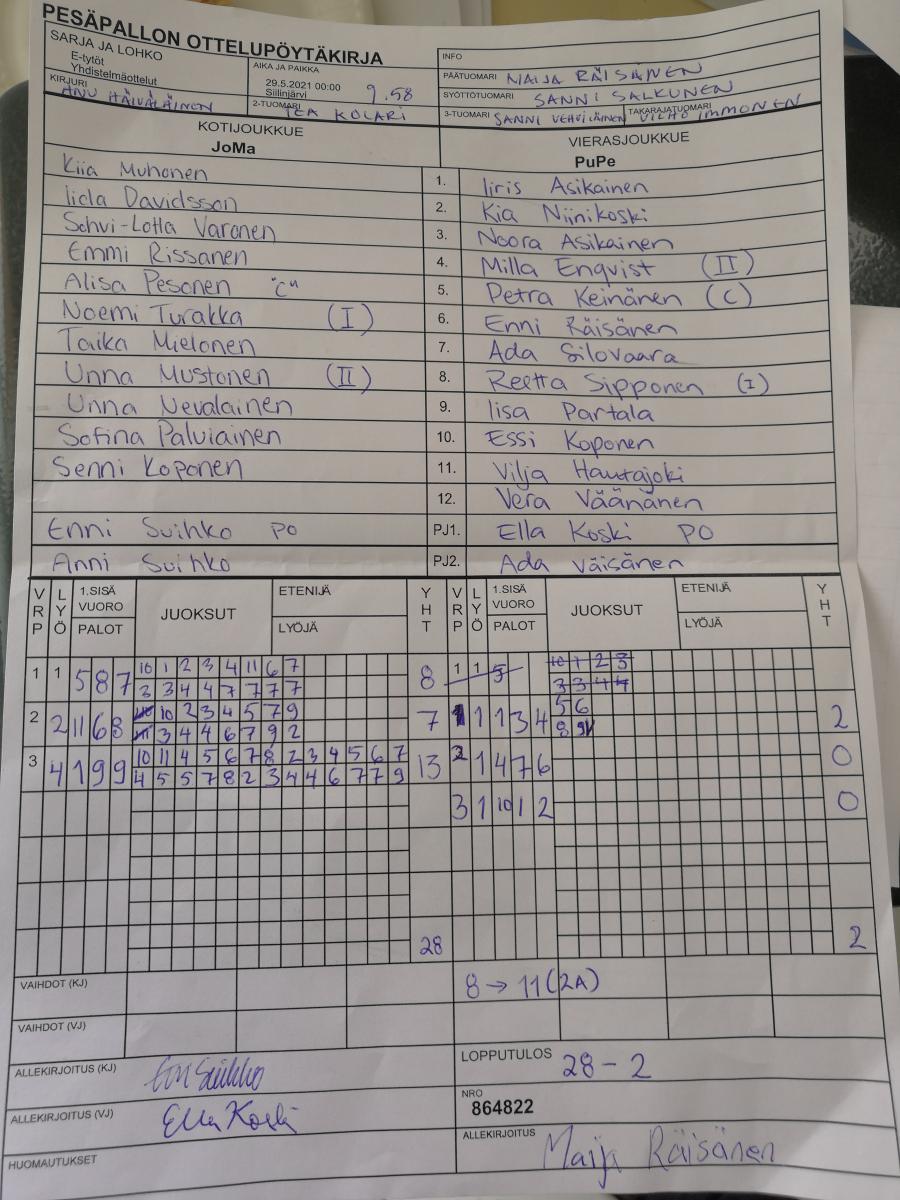 PESÄPALLON OTTELUPÖYTÄKIRJA
SARJA JA LOHKO
E-tytöt
Yhdistelmäottelut
AIKA JA PAIKKA
29.5.2021 00:00 9.58
Siilinjärvi
INFO
PÄÄTUOMARI MAIJA RÄISÄNEN
SYÖTTÖTUOMARI SANNI SALKUNEN
KIRJURI ANU HÄIVÄLÄINEN
2-TUOMARI TEA KOLARI
3-TUOMARI SANNI VEHVILÄINEN TAKARAJATUOMARI VILHO IMMONEN
KOTIJOUKKUE VIERASJOUKKUE
JoMa PuPe
Kiia Muhonen 1. Iiris Asikainen
Iida Davidsson 2. Kia Niinikoski
Varonen 3. Noora Asikainen
Emmi Rissanen 4. Milla Enqvist (II)
Alisa Pesonen "C" 5. Petra Keinänen (C)
Noemi Turakka (I) 6. Enni Räisänen
Taika Mielonen 7. Ada Silovaara
Unna Mustonen (II) 8. Reetta Sipponen (I)
Unna Nevalainen 9. Iisa Partala
Sofina Palviainen 10. Essi Koponen
Senni Koponen 11. Vilja Hautajoki
12. Vera Väänänen
Enni Suihko PO PJ1. Ella Koski PO
Anni Suihko PJ2. Ada Väisänen
VRP LYÖ 1.SISÄ VUORO PALOT JUOKSUT ETENIJÄ LYÖJÄ YHT VRP LYÖ 1.SISÄ VUORO PALOT JUOKSUT ETENIJÄ LYÖJÄ YHT
1 1 5 8 7 10 1 2 3 4 11 6 7 8 1 1 5 10 1 2 3
3 3 4 4 7 7 7 7 3 3 4 4
2 2 11 6 8 10 2 3 4 5 7 9 7 1 1 1 3 4 5 6 2
3 4 4 6 7 9 2 8 9
3 4 1 9 9 10 11 4 5 6 7 8 2 3 4 5 6 7 13 2 1 4 7 6 0
4 5 5 7 8 2 3 4 4 6 7 7 9
3 1 10 1 2 0
28 2
VAIHDOT (KJ) 8 → 11 (2A)
VAIHDOT (VJ)
ALLEKIRJOITUS (KJ) Suihko LOPPUTULOS 28 - 2
ALLEKIRJOITUS (VJ) Ella Koski NRO
864822
HUOMAUTUKSET ALLEKIRJOITUS Maija Räisänen